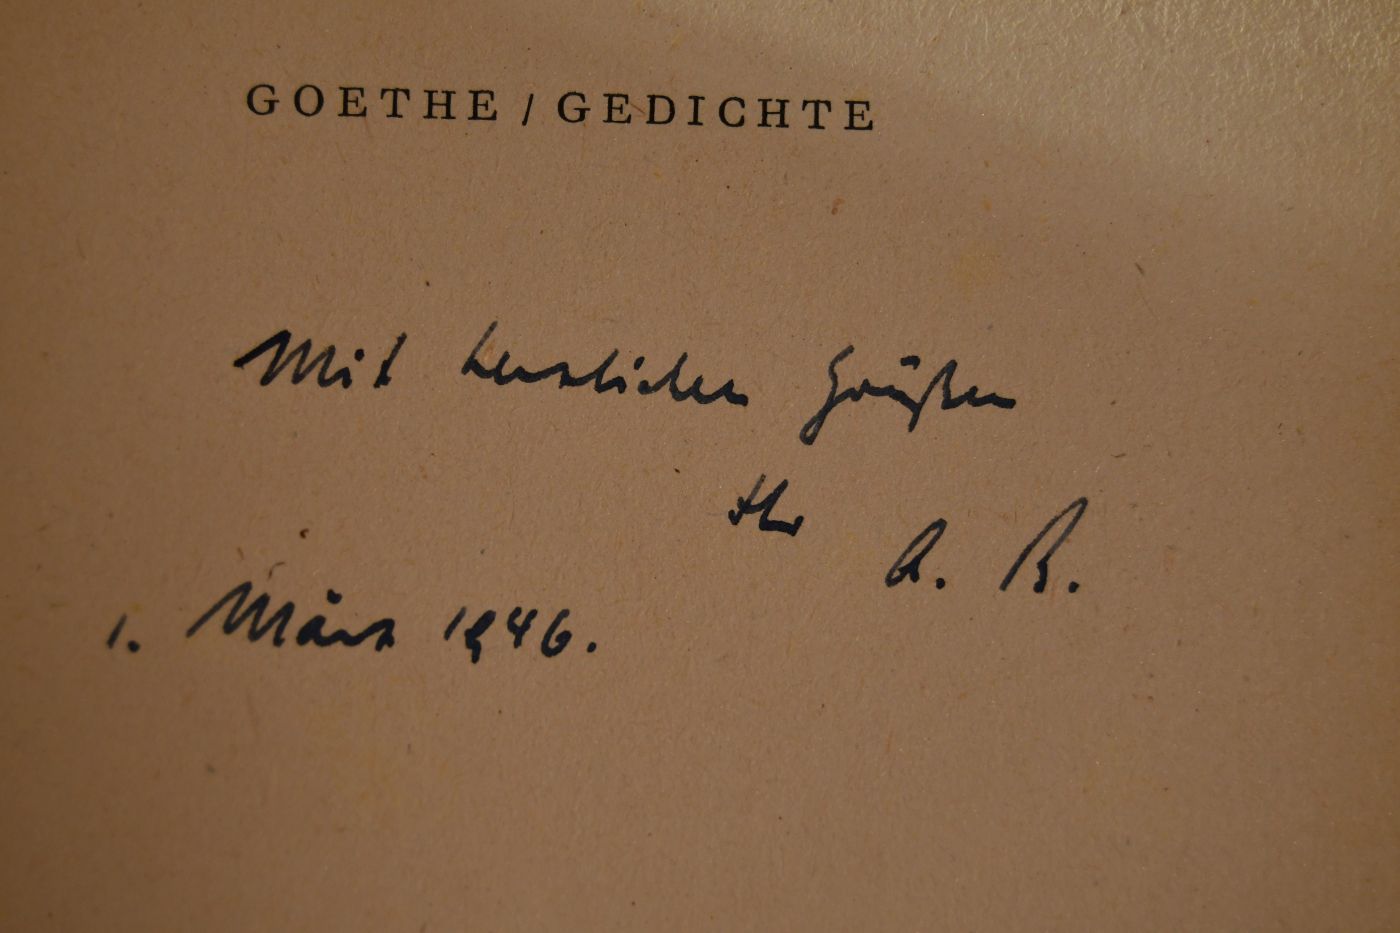 GOETHE / GEDICHTE
Mit herzlichen Grüßen
Ihr A. B.
1. März 1946.